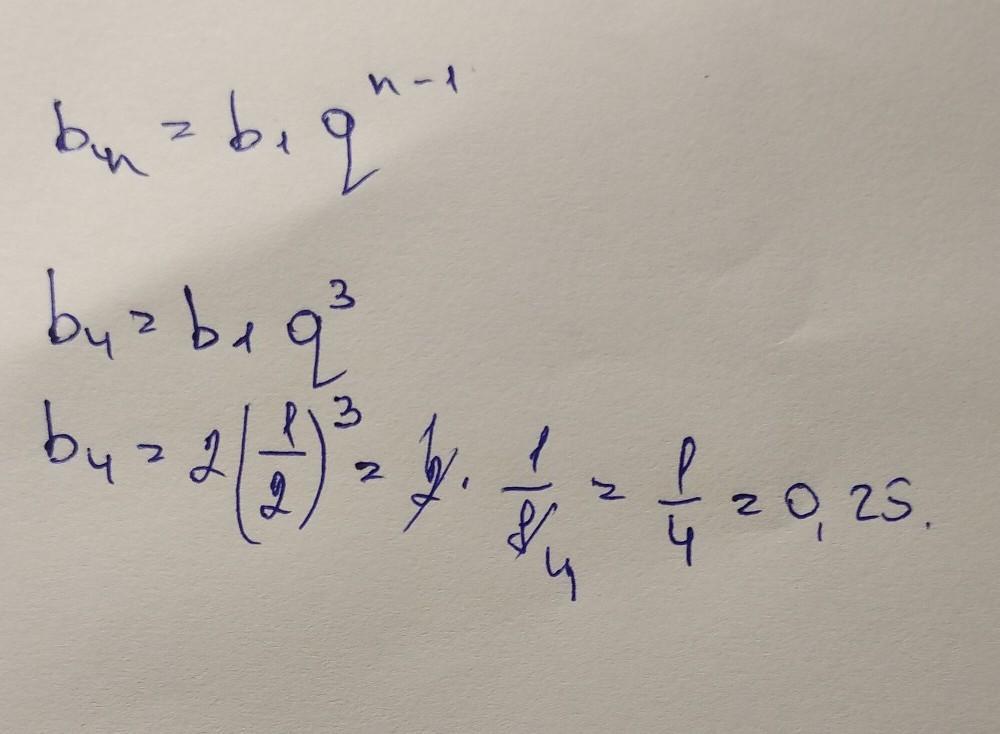 bₙ = b₁ qⁿ⁻¹
b₄ = b₁ q³
b₄ = 2(1/2)³ = 2 · 1/8 4 = 1/4 = 0,25.